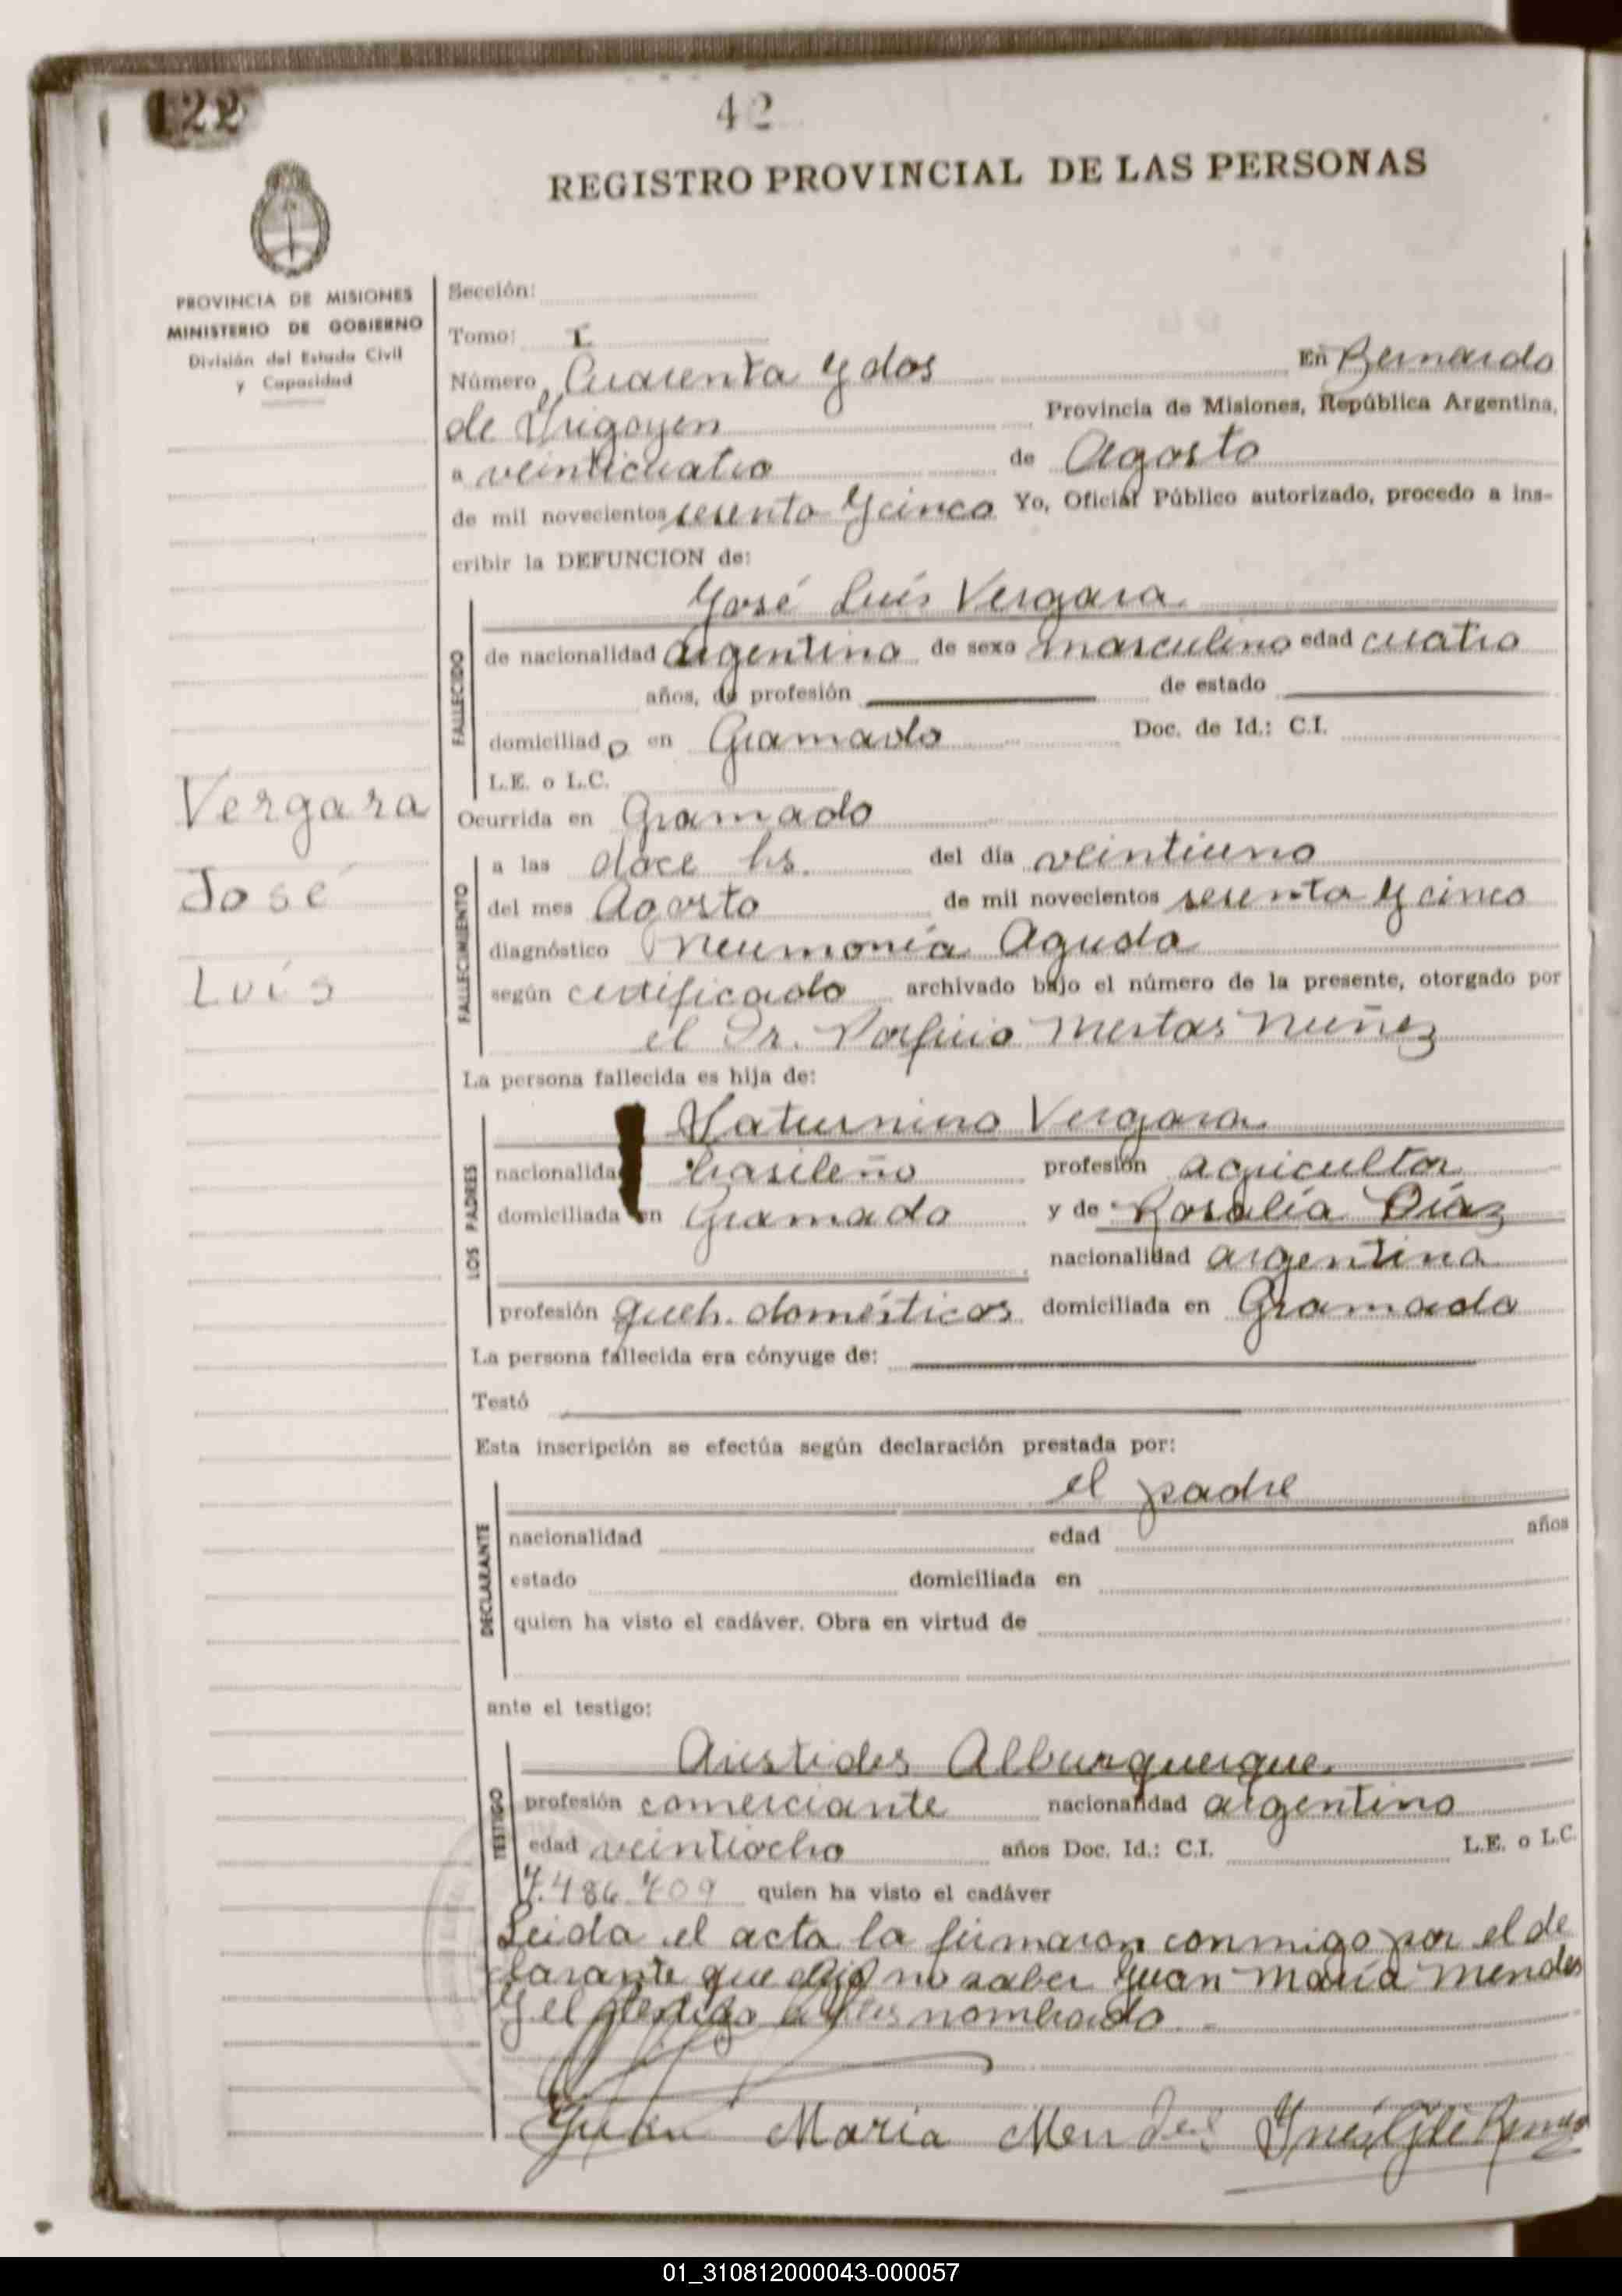 122
42
REGISTRO PROVINCIAL DE LAS PERSONAS
PROVINCIA DE MISIONES
MINISTERIO DE GOBIERNO
División del Estado Civil
y Capacidad
Sección:
Tomo: I
Número Cuarenta y dos En Bernardo
de Yrigoyen Provincia de Misiones, República Argentina,
a veinticuatro de Agosto
de mil novecientos sesenta y cinco Yo, Oficial Público autorizado, procedo a ins-
cribir la DEFUNCION de:
FALLECIDO
José Luís Vergara
de nacionalidad argentino de sexo masculino edad cuatro
años, de profesión de estado
domiciliado en Gramado Doc. de Id.: C.I.
L.E. o L.C.
Vergara
José
Luís
Ocurrida en Gramado
FALLECIMIENTO
a las doce hs. del día veintiuno
del mes Agosto de mil novecientos sesenta y cinco
diagnóstico Neumonía Aguda
según certificado archivado bajo el número de la presente, otorgado por
el Dr. Porfirio Mertas Nuñez
La persona fallecida es hija de:
LOS PADRES
Saturnino Vergara
nacionalidad brasileño profesión agricultor
domiciliada en Gramado y de Rosalía Díaz
nacionalidad argentina
profesión queh. domésticos domiciliada en Gramado
La persona fallecida era cónyuge de:
Testó
Esta inscripción se efectúa según declaración prestada por:
DECLARANTE
el padre
nacionalidad edad años
estado domiciliada en
quien ha visto el cadáver. Obra en virtud de
ante el testigo:
TESTIGO
Aristides Alburquerque
profesión comerciante nacionalidad argentino
edad veintiocho años Doc. Id.: C.I. L.E. o L.C.
7.486.709 quien ha visto el cadáver
Leida el acta la firmaron conmigo por el de
clarante que dijo no saber Juan María Mendes
y el testigo antes nombrado.-
Juan Maria Mendes
01_310812000043-000057